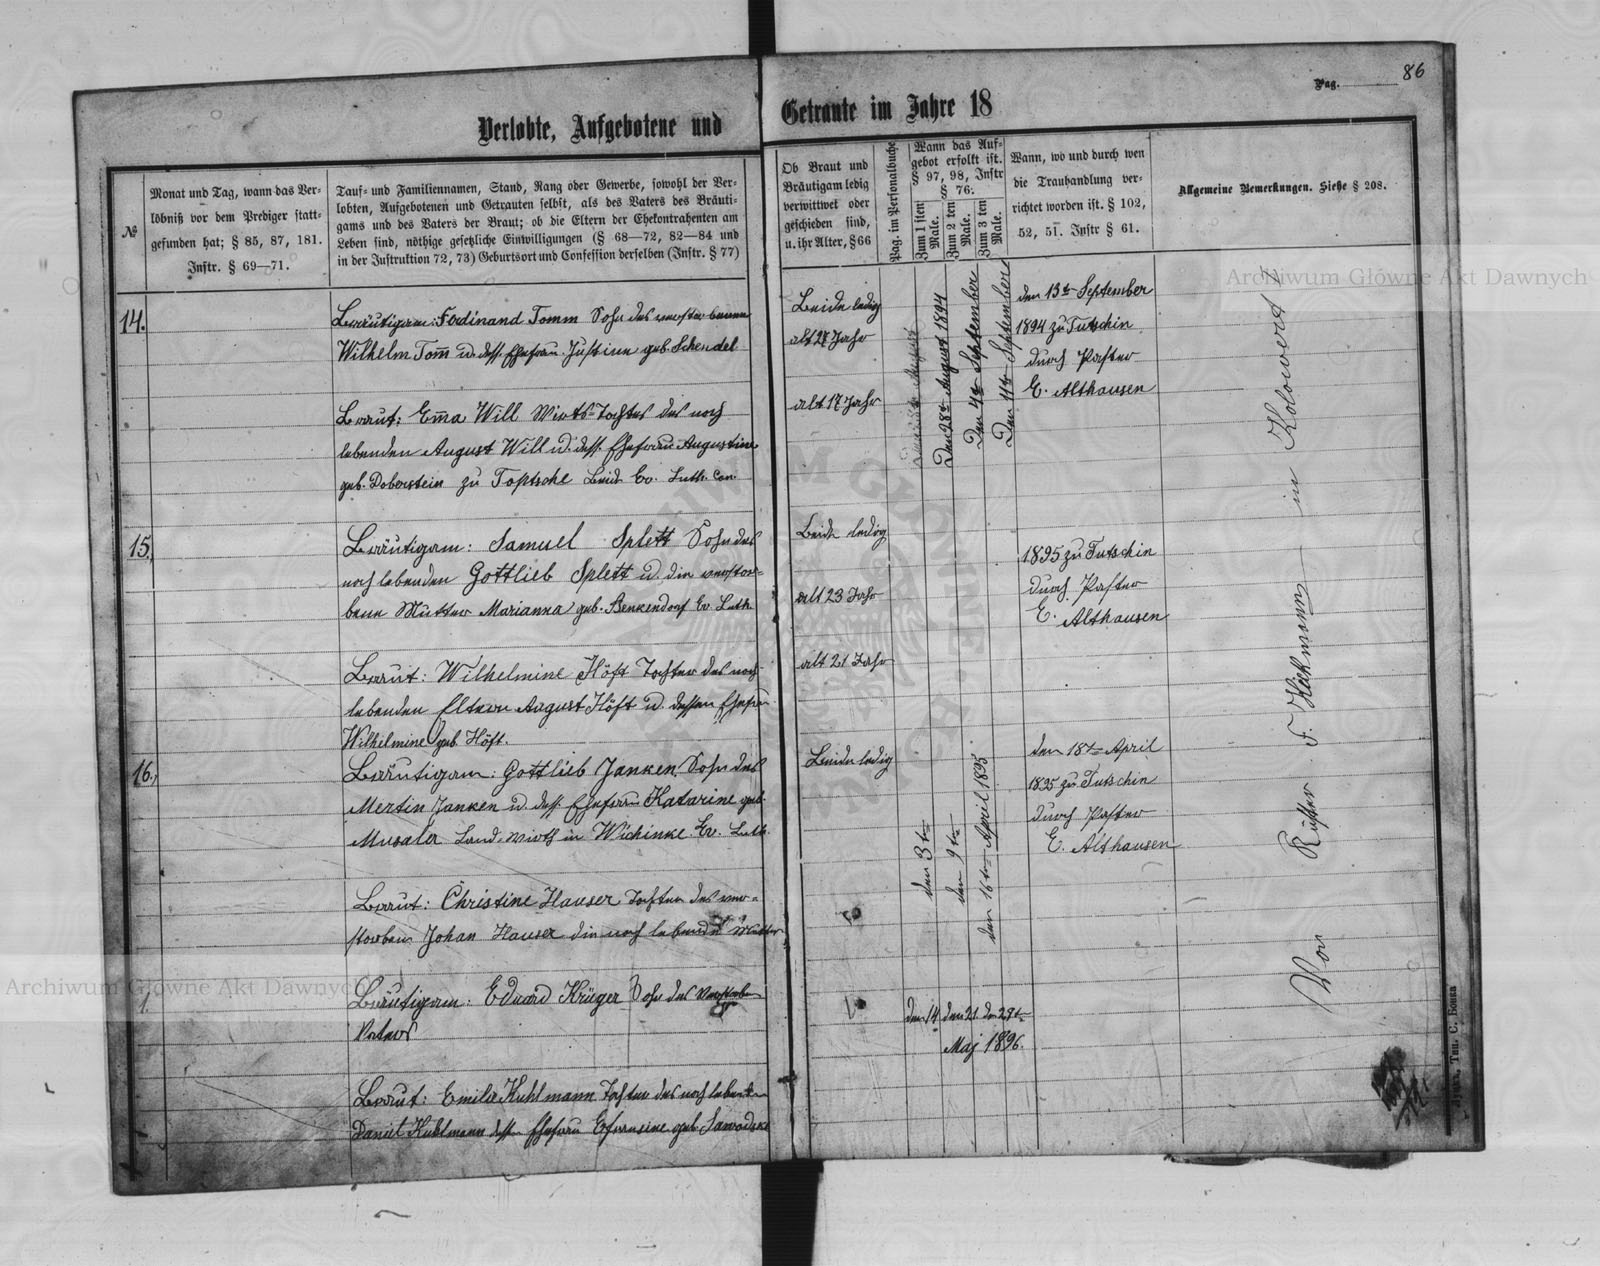 Pag. 86
Verlobte, Aufgebotene und Getraute im Jahre 18
№
Monat und Tag, wann das Ver-
löbniß vor dem Prediger statt-
gefunden hat; § 85, 87, 181.
Instr. § 69—71.
Tauf- und Familiennamen, Stand, Rang oder Gewerbe, sowohl der Ver-
lobten, Aufgebotenen und Getrauten selbst, als des Vaters des Bräuti-
gams und des Vaters der Braut; ob die Eltern der Ehekontrahenten am
Leben sind, nöthige gesetzliche Einwilligungen (§ 68—72, 82—84 und
in der Instruktion 72, 73) Geburtsort und Confession derselben (Instr. § 77)
Ob Braut und
Bräutigam ledig
verwittwet oder
geschieden sind,
u. ihr Alter, § 66
Pag. im Personalbuche
Wann das Auf-
gebot erfolgt ist.
§ 97, 98, Instr
§ 76.
Zum 1 sten Male.
Zum 2 ten Male.
Zum 3 ten Male.
Wann, wo und durch wen
die Trauhandlung ver-
richtet worden ist. § 102,
52, 51. Instr § 61.
Allgemeine Bemerkungen. Siehe § 208.
14.
Bräutigam: Ferdinand Tomm Sohn des verstorbenen
Wilhelm Tom̅ u. dess. Ehefrau Justine geb. Schendel
Braut: Em̅a Will Wirts-Tochter des noch
lebenden August Will u. dess. Ehefrau Augustine
geb. Doberstein zu Toptsche Beid. Ev. Luth. Con.
Beide ledig
alt 21 Jahr
alt 17 Jahr
Den 28t August 1894
Den 4t September
Den 11t September
den 13t September
1894 zu Tutschin
durch Paster
E. Althausen
15.
Bräutigam: Samuel Splett Sohn des
noch lebenden Gottlieb Splett u. die verstor-
bene Mutter Marianna geb. Benkendorf Ev. Luth.
Braut: Wilhelmine Höft Tochter des noch
lebenden Eltern August Höft u. dessen Ehefrau
Wilhelmine geb. Höft.
Beide ledig
alt 23 Jahr
alt 21 Jahr
1895 zu Tutschin
durch Paster
E. Althausen
16.
Bräutigam: Gottlieb Janken Sohn des
Mertin Janken u. dess. Ehefrau Katarine geb.
Musala Land-Wirth in Wichinke Ev. Luth.
Braut: Christine Hauser Tochter des ver-
storben Johan Hauser die noch lebende Mutter
Beide ledig
den 3te
den 9te
den 16te April 1895
den 18te April
1895 zu Tutschin
durch Paster
E. Althausen
1.
Bräutigam: Eduard Krüger Sohn des Verstorben
Vaters
Braut: Emilie Kuhlmann Tochter des noch lebenden
Daniel Kuhlmann dessen Ehefrau Efrusine geb. Sawadzke
den 14 den 21 den 29te
Maj 1896.
Von Küster F. Heckmann in Kolowert
Тип. С. Бонка
Archiwum Główne Akt Dawnych
Archiwum Główne Akt Dawnych